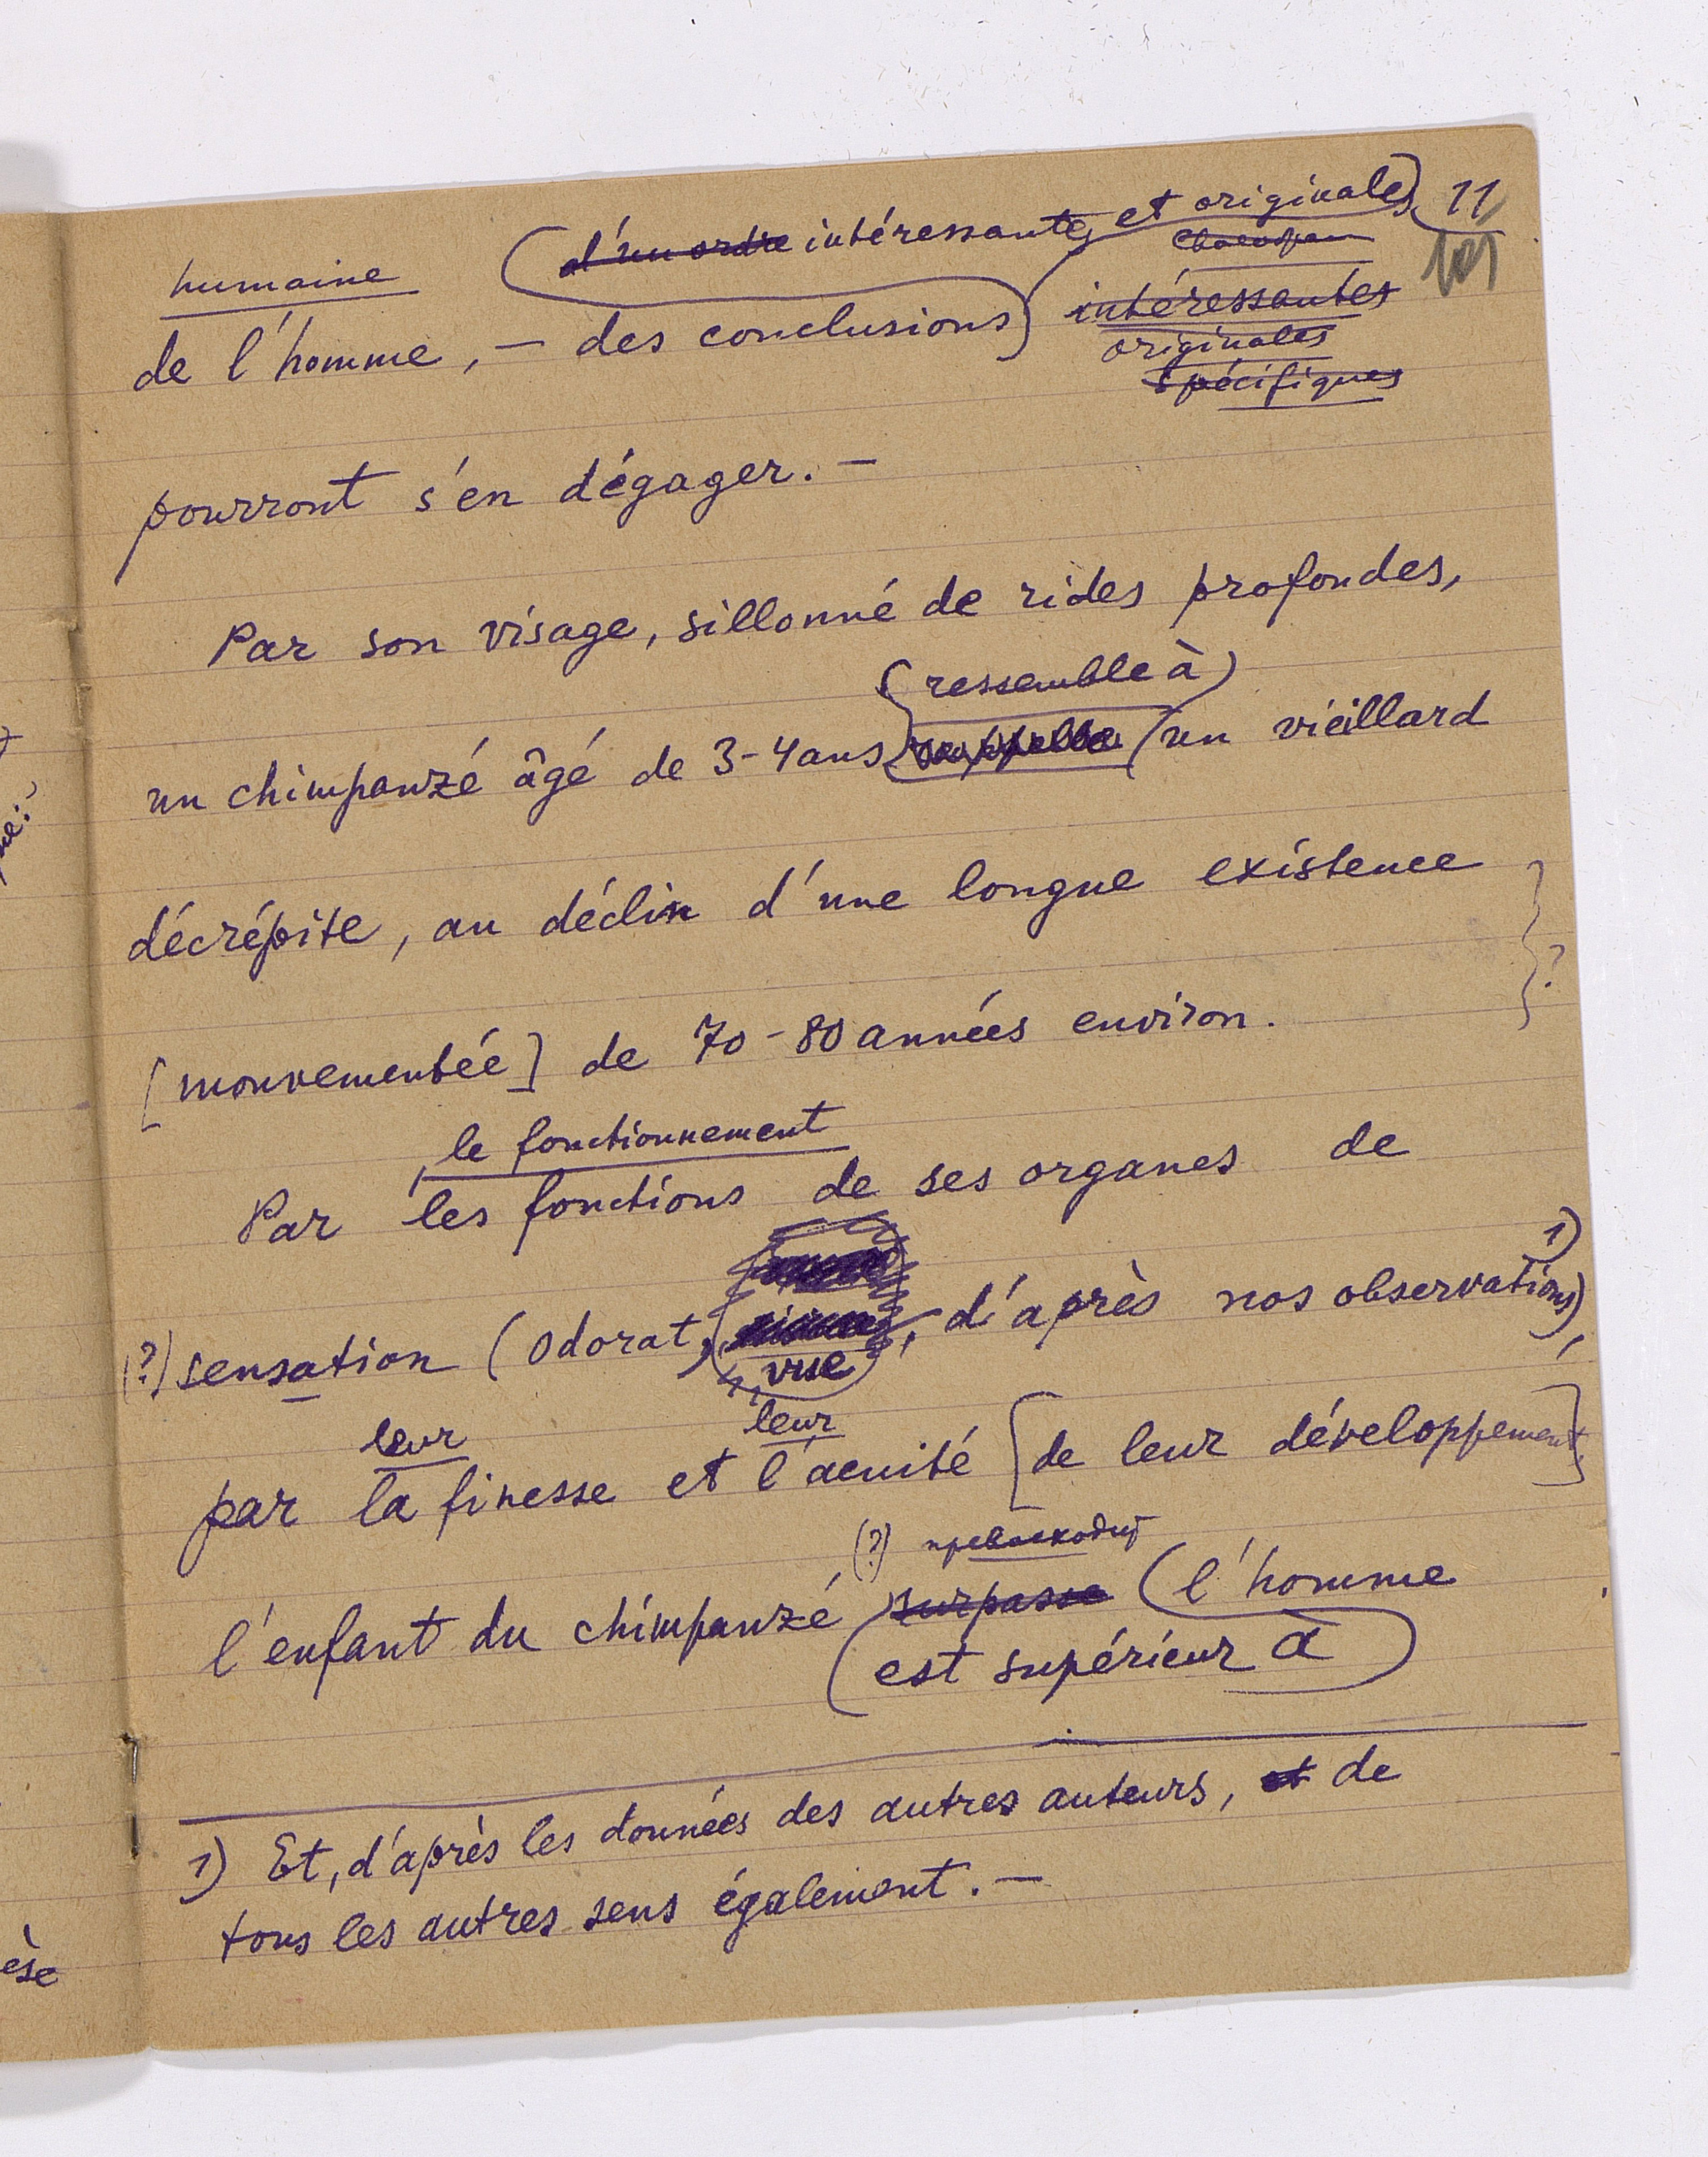 d'un ordre intéressantes et originales 11
101
humaine
de l'homme, — des conclusions intéressantes
originales
spécifiques
pourront s'en dégager. —
Par son visage, sillonné de rides profondes,
(ressemble à)
un chimpanzé âgé de 3-4 ans rappelle un vieillard
décrépite, au déclin d'une longue existence
?
[mouvementée] de 70-80 années environ.
le fonctionnement
Par les fonctions de ses organes de
(?) sensation (odorat, d'après nos observations) 1),
vue
leur leur
par la finesse et l'acuité [de leur développement]
(?) превосходит
l'enfant du chimpanzé surpasse l'homme
est supérieur à
1) Et, d'après les données des autres auteurs, et de
tous les autres sens également. —
èse